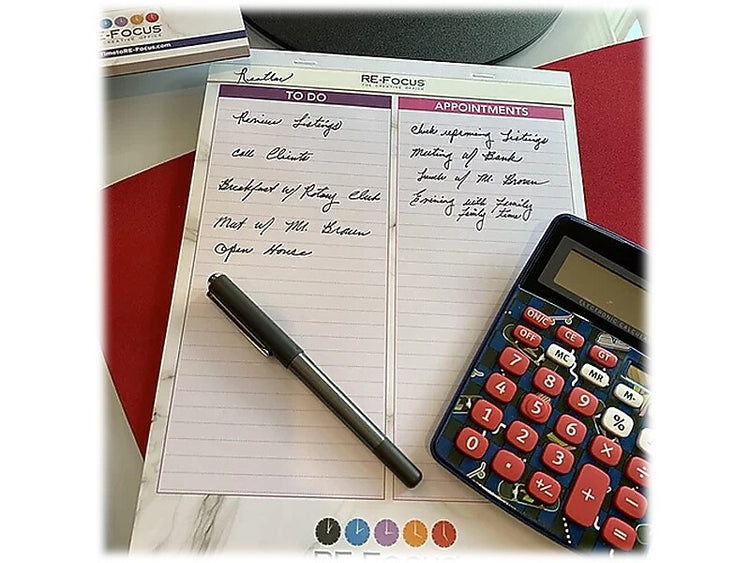 RE-FOCUS
THE CREATIVE OFFICE
TimetoRE-Focus.com
Realtor
RE-FOCUS
THE CREATIVE OFFICE
TO DO
Review Listings
Call Clients
Breakfast w/ Rotary Club
Meet w/ Mr. Brown
Open House
APPOINTMENTS
Check upcoming Listings
Meeting w/ Bank
Lunch w/ Mr. Brown
Evening with Family
Family Time
ELECTRONIC CALCULATOR
ON/C CE GT
OFF MC MR M-
7 8 9 %
4 5 6 × ÷
1 2 3 + −
0 . +/− =
RE-FOCUS